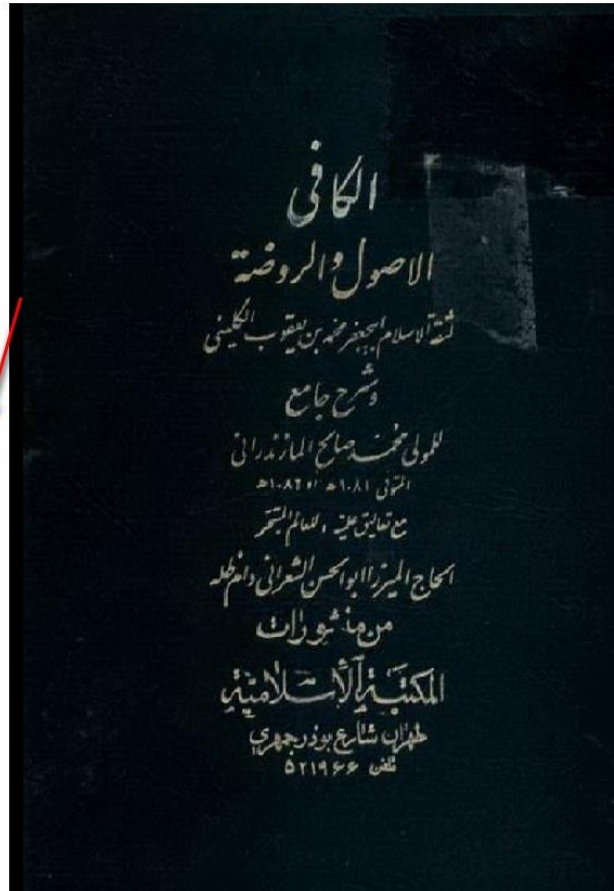 الكافى
الاصول والروضة
لثقة الاسلام ابيجعفر محمد بن يعقوب الكلينى
وشرح جامع
للمولى محمد صالح المازندرانى
المتوفى ١٠٨١ ه او ١٠٨٦ ه
مع تعاليق علمية ، للعالم المتبحر
الحاج الميرزا ابوالحسن الشعرانى دام ظله
من منشورات
المكتبة الاسلامية
طهران شارع بوذرجمهري
تلفن ۵۲۱۹۶۶